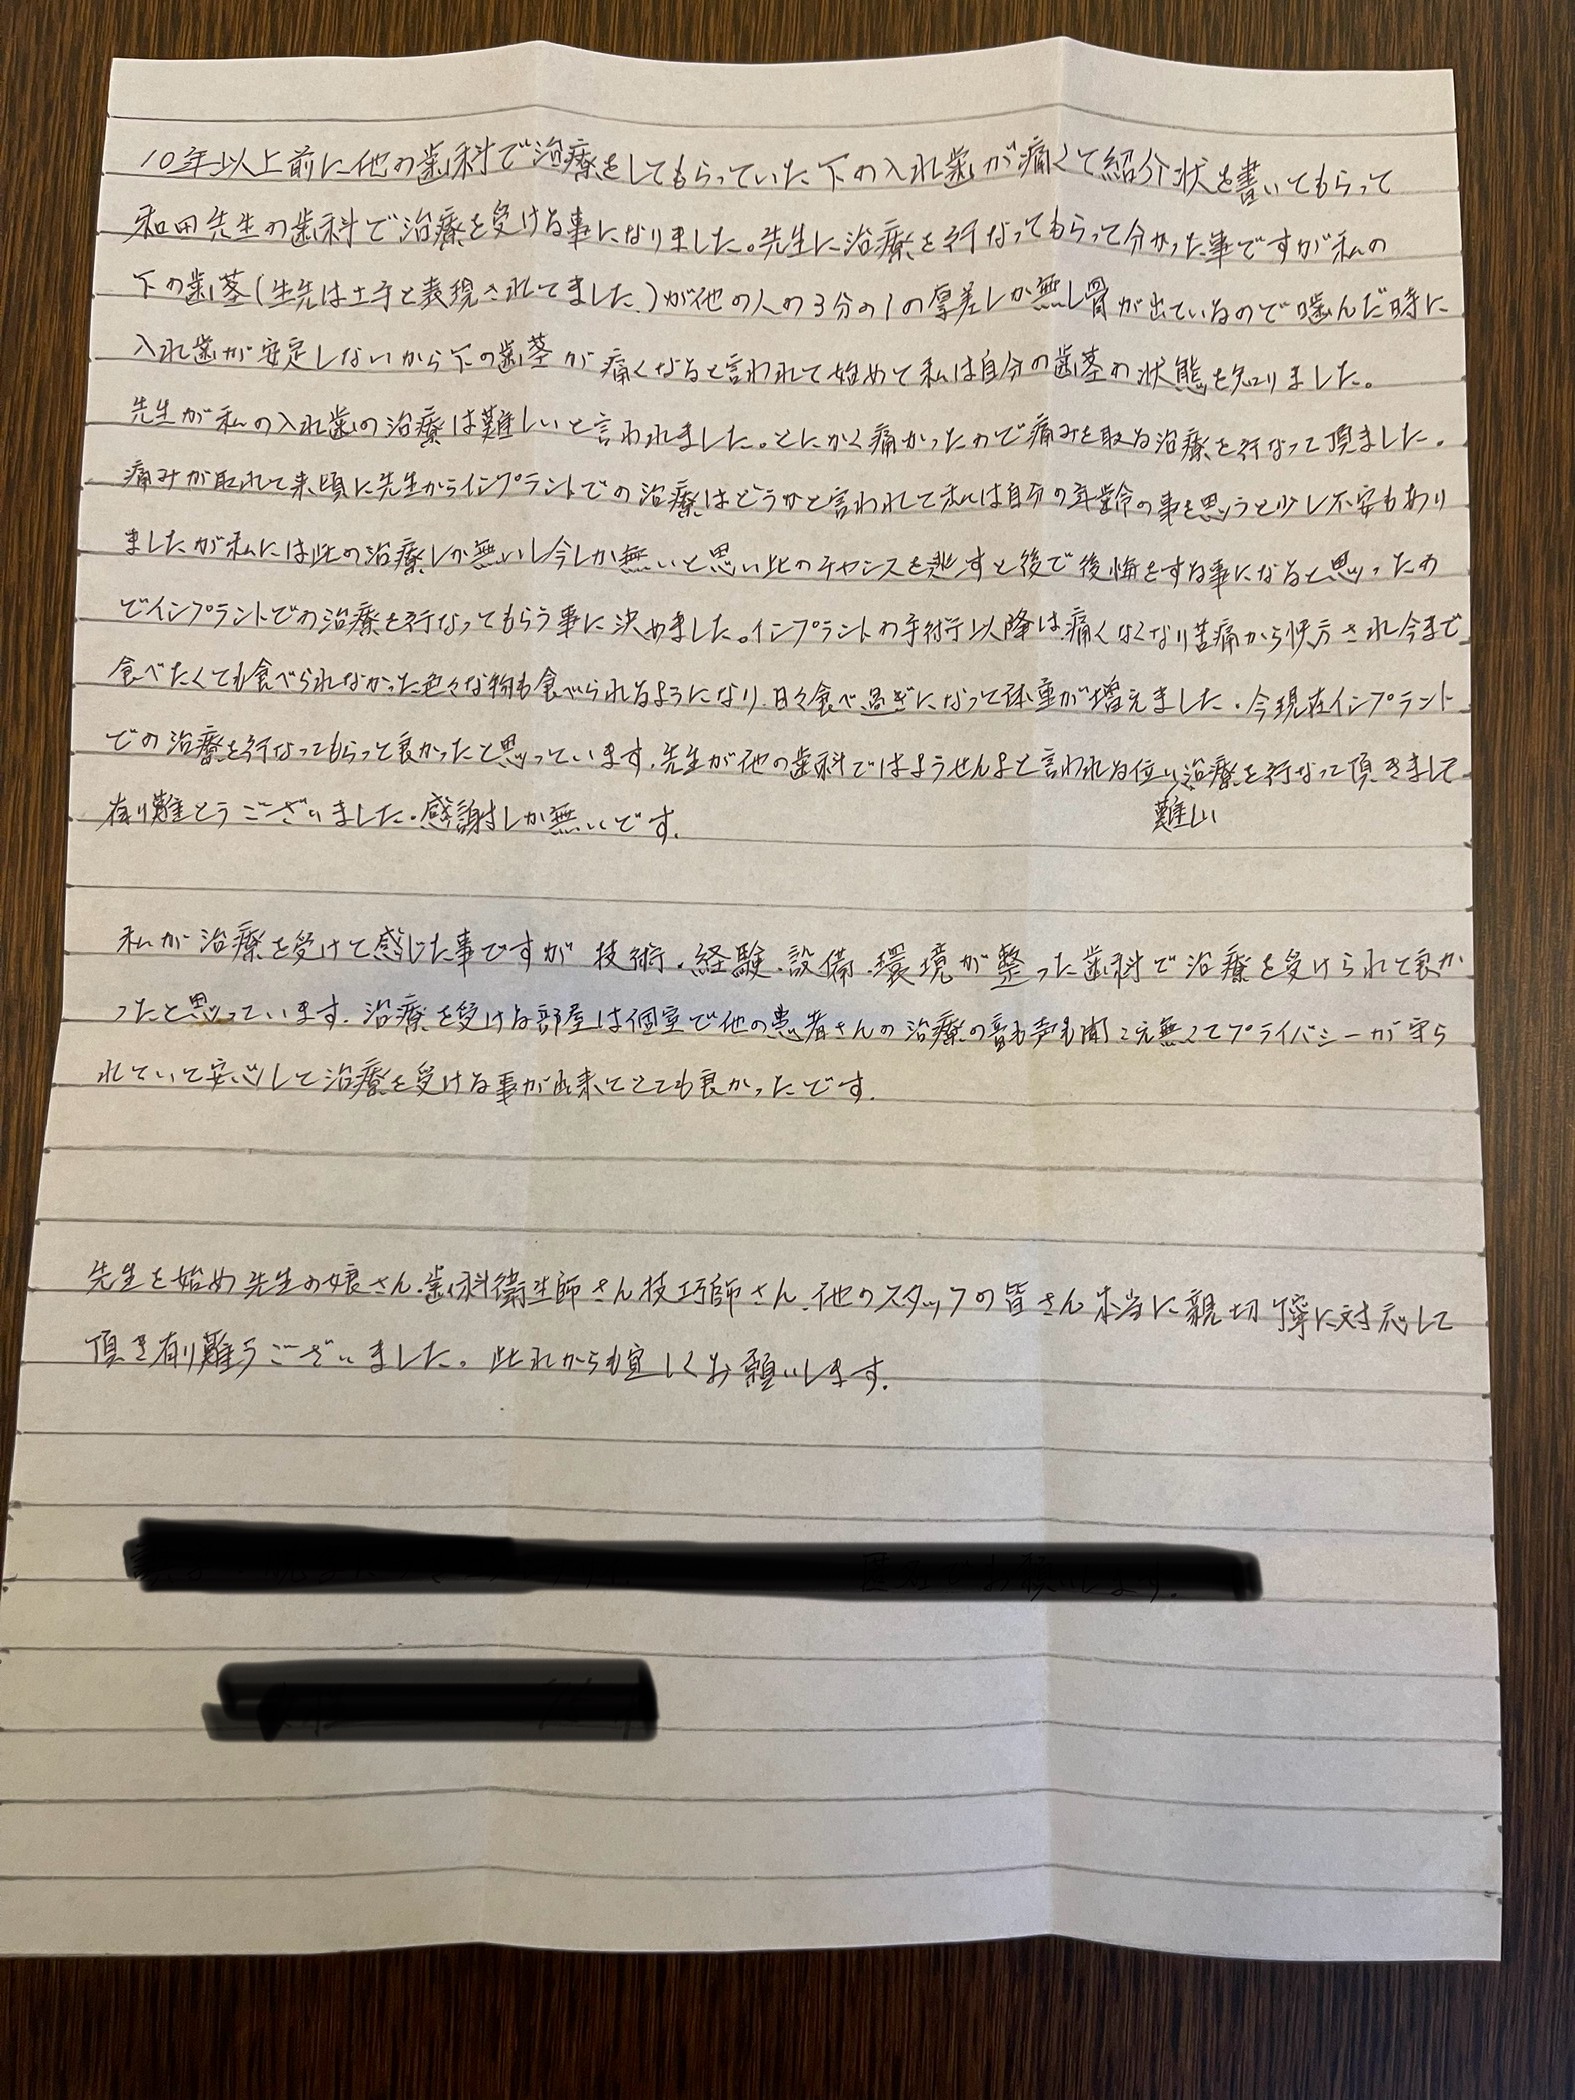 10年以上前に他の歯科で治療をしてもらっていた下の入れ歯が痛くて紹介状を書いてもらって
和田先生の歯科で治療を受ける事になりました。先生に治療を行なってもらって分かった事ですが私の
下の歯茎(生先は土手と表現されてました)が他の人の3分の1の厚差しか無し骨が出ているので噛んだ時に
入れ歯が安定しないから下の歯茎が痛くなると言われて始めて私は自分の歯茎の状態を知りました。
先生が私の入れ歯の治療は難しいと言われました。とにかく痛かったので痛みを取る治療を行なって頂ました。
痛みが取れて来頃に先生からインプラントでの治療はどうかと言われて私は自分の年齢の事を思うと少し不安もあり
ましたが私には此の治療しか無いし今しか無いと思い此のチャンスを逃すと後で後悔をする事になると思ったの
でインプラントでの治療を行なってもらう事に決めました。インプラントの手術行以降は痛くなくなり苦痛から され今まで
食べたくても食べられなかった色々な物も食べられるようになり、日々食べ過ぎになって体重が増えました。今現在インプラント
での治療を行なってもらって良かったと思っています。先生が他の歯科ではようせんよと言われる位い難しい治療を行なって頂きまして
有り難とうございました。感謝しか無いです。
私が治療を受けて感じた事ですが技術、経験、設備、環境が整った歯科で治療を受けられて良か
ったと思っています。治療を受ける部屋は個室で他の患者さんの治療の音も声も聞こえ無くてプライバシーが守ら
れていて安心して治療を受ける事が出来てとても良かったです。
先生を始め先生の娘さん、歯科衛生師さん技巧師さん、他のスタッフの皆さん本当に親切 寧に対応して
頂き有り難うございました。此れからも宜しくお願いします。